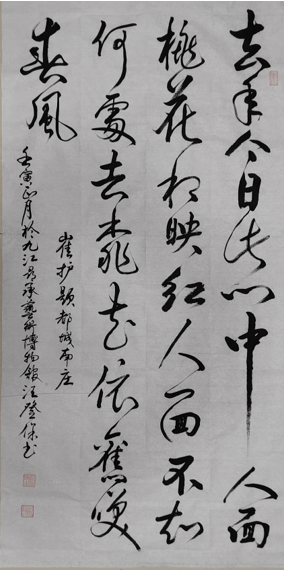 去年今日此门中人面
桃花相映红人面不知
何处去桃花依旧笑
春风
崔护题都城南庄
壬寅正月於九江昌承艺术博物馆汪登保书